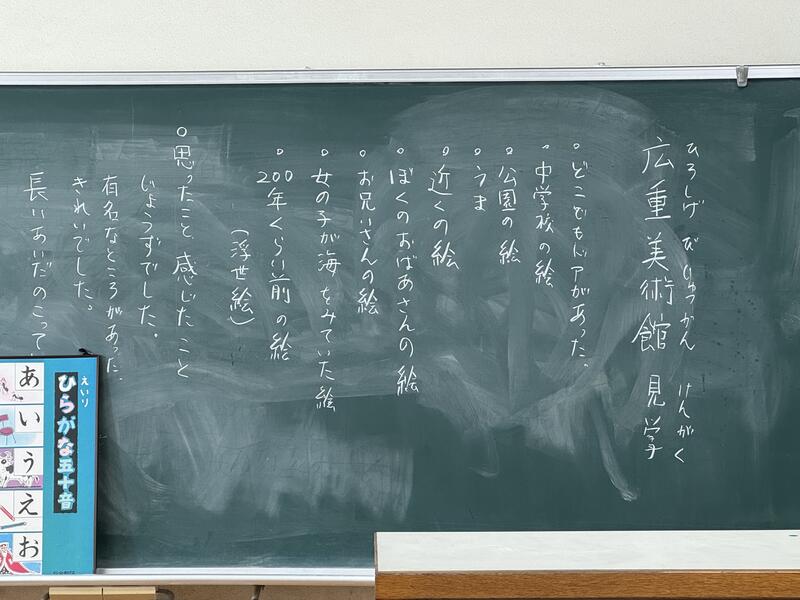 ひろしげ びじゅつかん けんがく
広重美術館 見学
。どこでもドアがあった。
。中学校の絵
。公園の絵
。うま
。近くの絵
。ぼくのおばあさんの絵
。お兄いさんの絵
。女の子が海をみていた絵
。200年くらい前の絵
(浮世絵)
。思ったこと 感じたこと
じょうずでした。
有名なところがあった。
きれいでした。
長いあいだのこってい
えいり
ひらがな五十音
あ
い
う
え
お